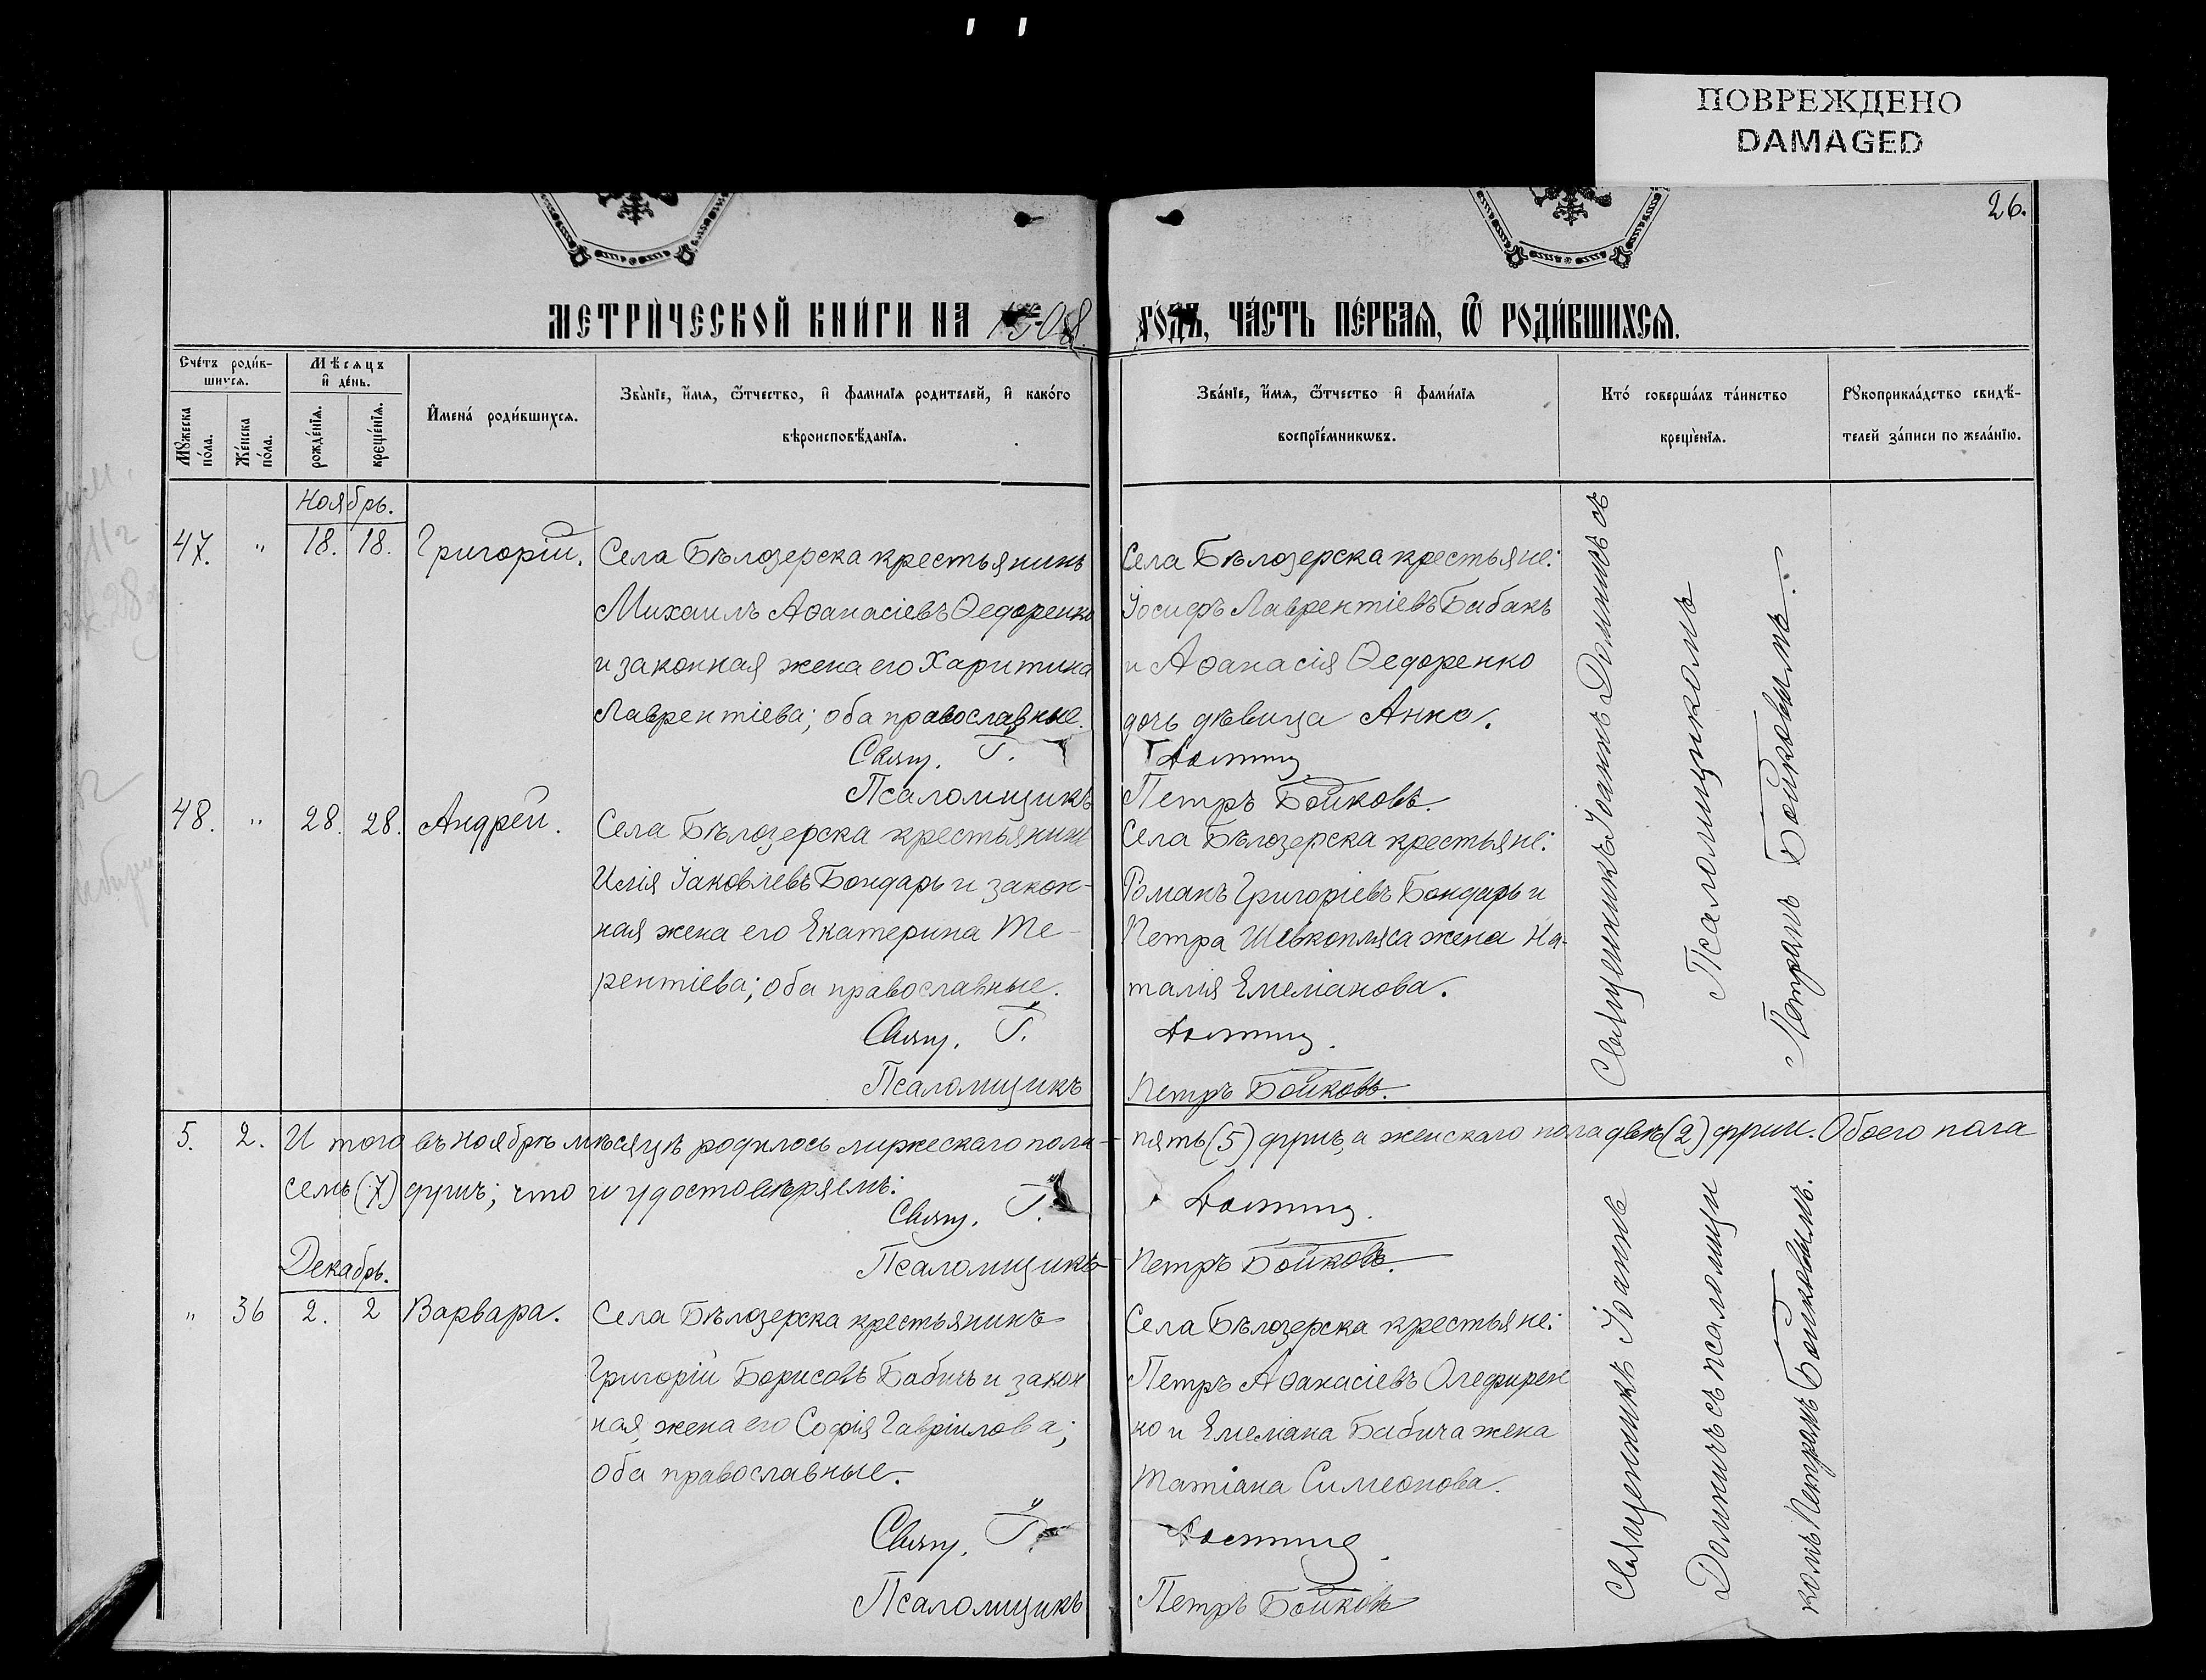 ПОВРЕЖДЕНО
DAMAGED
26.
МЕТРИЧЕСКОЙ КНИГИ НА 1908 ГОДЪ, ЧАСТЬ ПЕРВАЯ, Ѿ РОДИВШИХСЯ.
Счетъ родив-
шихся.
Мужеска пола.
Женска пола.
Мѣсяцъ
и день.
рожденія.
крещенія.
Имена родившихся.
Званіе, имя, ѿтчество, и фамилія родителей, и какого
вѣроисповѣданія.
Званіе, имя, ѿтчество и фамилія
воспріемниковъ.
Кто совершалъ таинство
крещенія.
Рукоприкладство свидѣ-
телей записи по желанію.
Ноябрь.
47. " 18. 18. Григорій.
Села Бѣлозерска крестьянинъ
Михаилъ Аѳанасіевъ Ѳедоренко
и законная жена его Харитина
Лаврентіева; оба православные.
Свящ. І.
Псаломщикъ
Села Бѣлозерска крестьяне:
Іосифъ Лаврентіевъ Бабакъ
и Аѳанасія Ѳедоренко
дочь дѣвица Анна.
Петръ Бойковъ.
48. " 28. 28. Андрей.
Села Бѣлозерска крестьянинъ
Илія Іаковлевъ Бондарь и закон-
ная жена его Екатерина Те-
рентіева; оба православные.
Свящ. І.
Псаломщикъ
Села Бѣлозерска крестьяне:
Романъ Григоріевъ Бондарь и
Петра Шевкопляса жена На-
талія Емеліанова.
Петръ Бойковъ.
Священникъ Іоаннъ съ
Псаломщикомъ
Петромъ Бойковымъ.
5. 2. Итого въ Ноябрѣ мѣсяцѣ родилось мужескаго пола пять (5) душъ, а женскаго пола двѣ (2) души. Обоего пола
семь (7) душъ; что и удостовѣряемъ:
Свящ. І.
Псаломщикъ Петръ Бойковъ.
Декабрь.
" 36 2. 2 Варвара.
Села Бѣлозерска крестьянинъ
Григорій Борисовъ Бабичъ и закон
ная жена его Софія Гавріилова;
оба православные.
Свящ. І.
Псаломщикъ
Села Бѣлозерска крестьяне:
Петръ Аѳанасіевъ Олефирен
ко и Емеліана Бабича жена
Татіана Симеонова.
Петръ Бойковъ
Священникъ Іоаннъ
съ псаломщи
комъ Петромъ Бойковымъ.